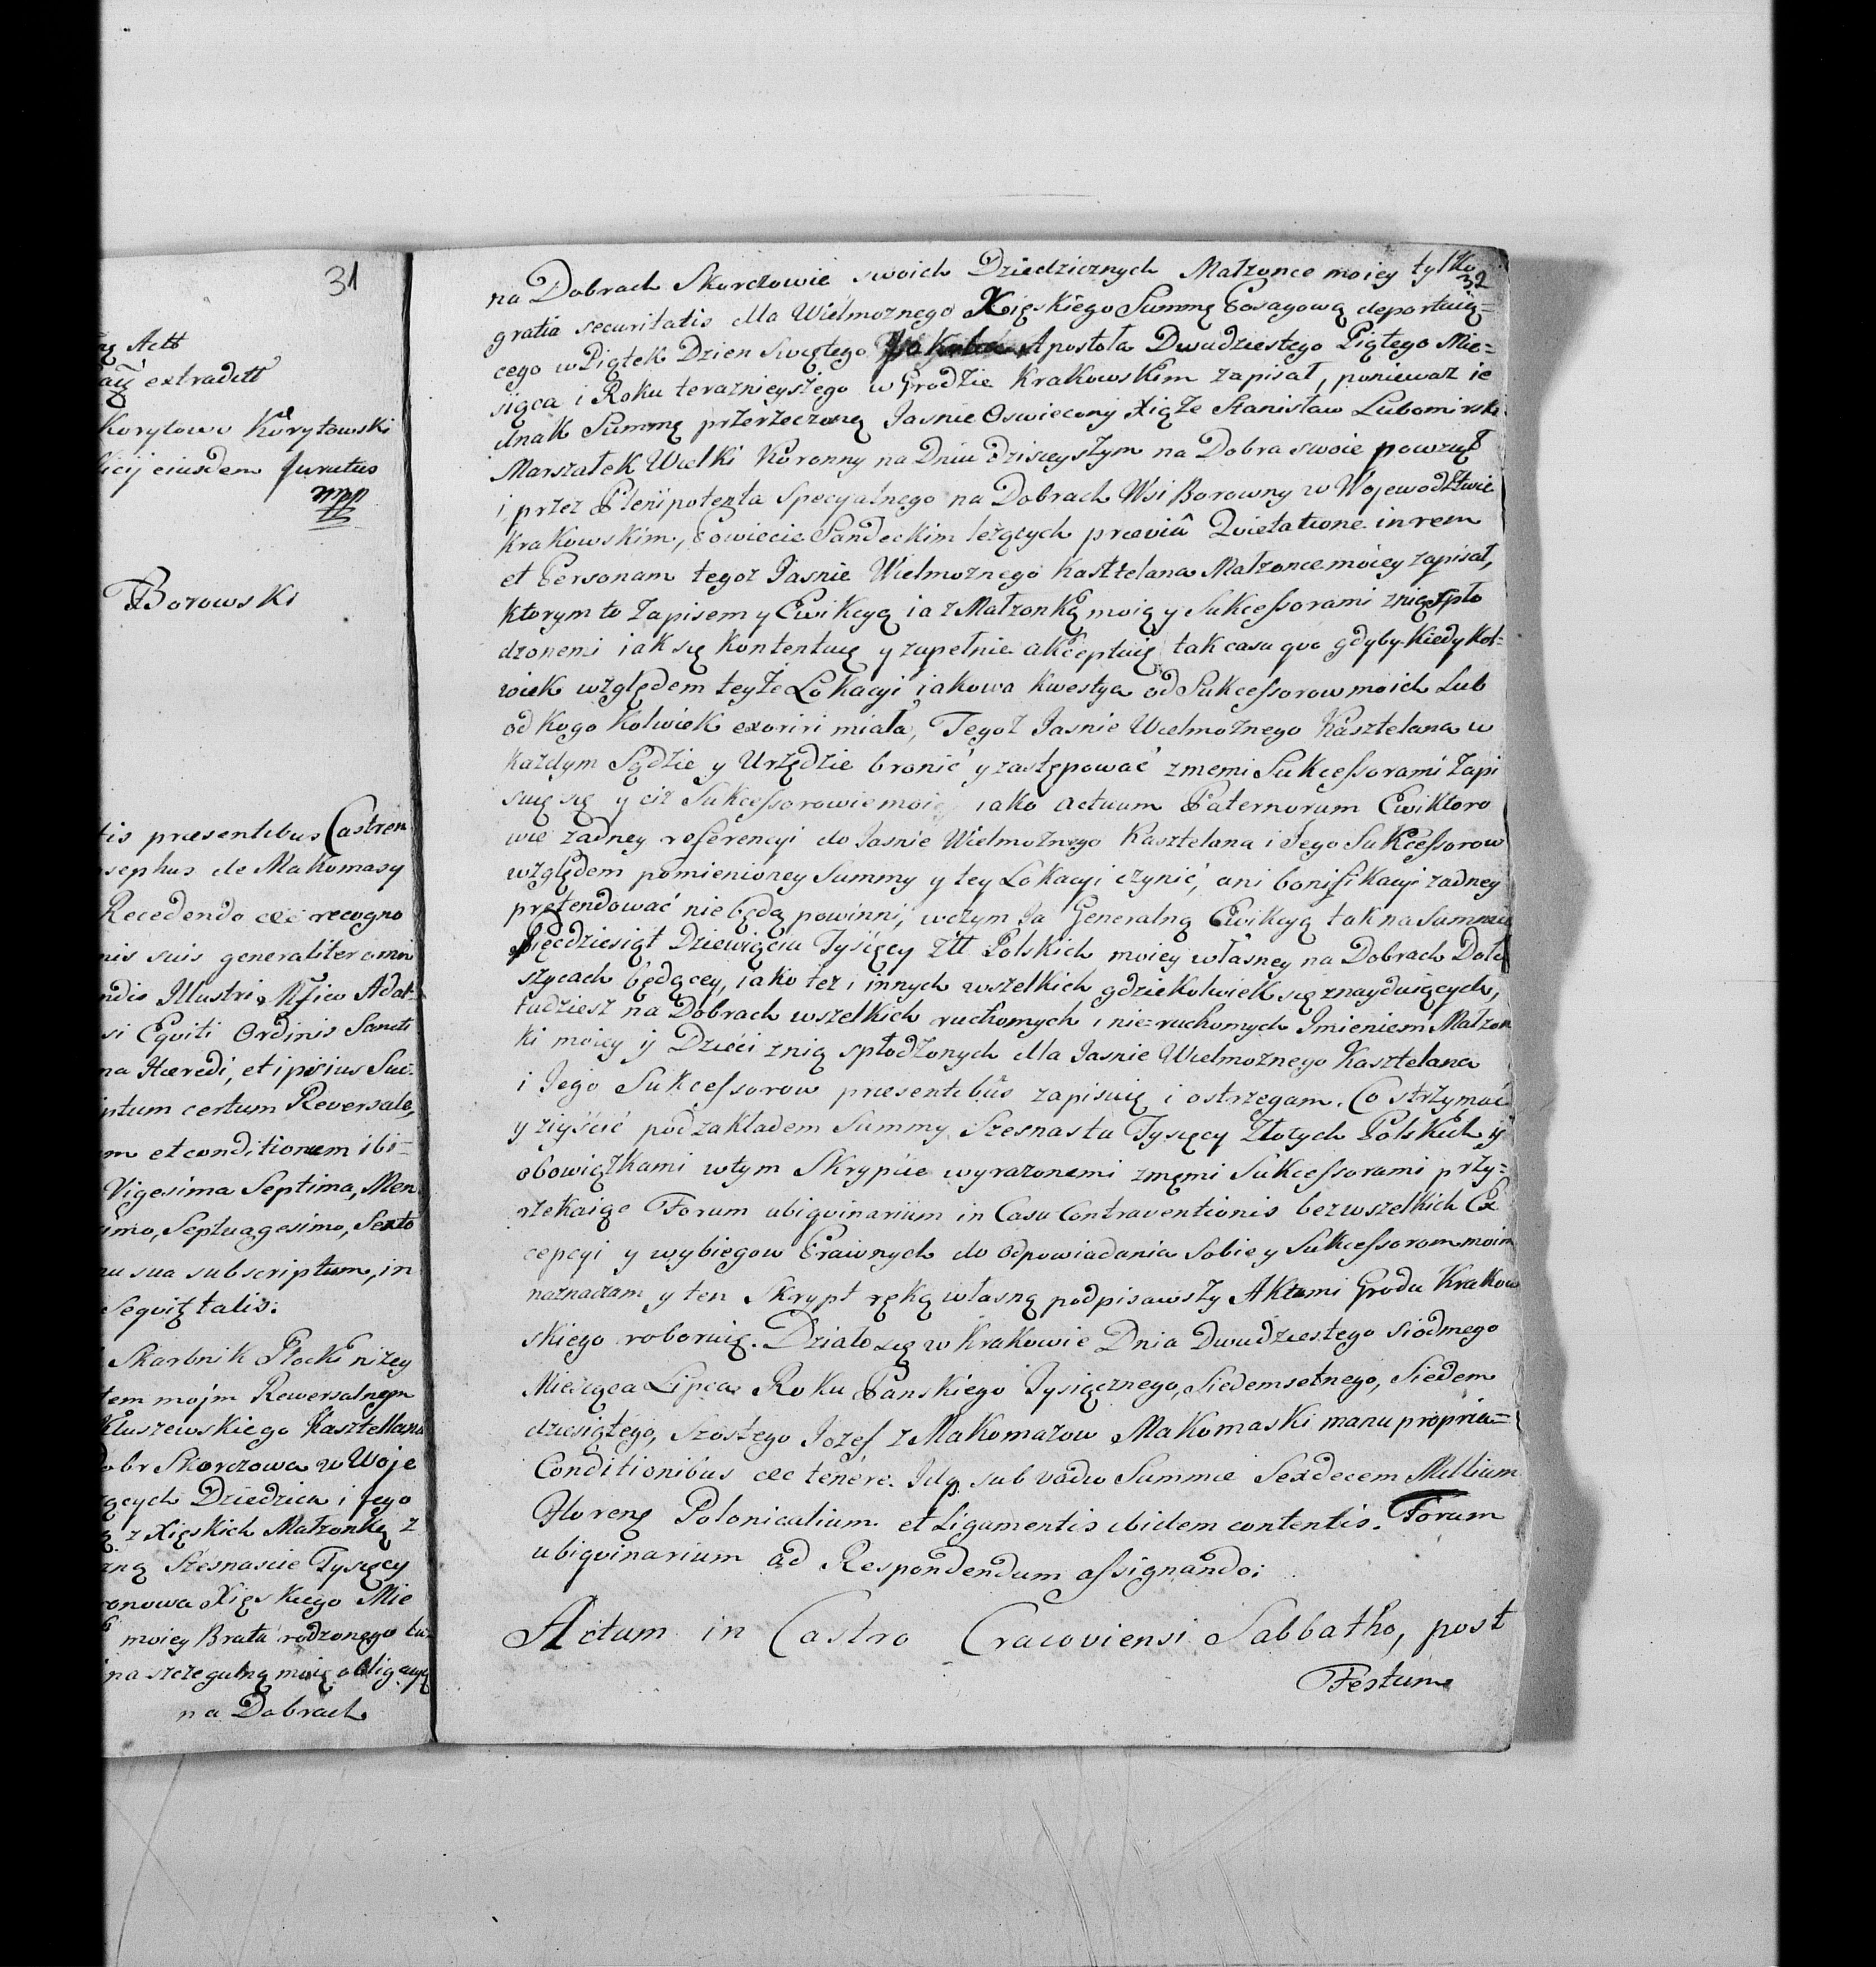 31
Actt
extraditt
Korytowo Korytowski
eiusdem Juratus
mpp
Borowski
tis praesentibus Castren
osephus de Makomasy
Recedendo etc recogno
nis suis generaliter omni
ndis Illustri Mfico Adal-
si Equiti Ordinis Sancti
na Haeredi, et ipsius Suc-
iptum certum Reversale,
m et conditionem ibi-
Vigesima Septima, Men
imo, Septuagesimo, Sexto
nu sua subscriptum, in
Sequit talis:
Skarbnik Płocki niżey
tem mojm Rewersalnym
Kluszewskiego Kasztellana
obr Skorczowa w Woje
zących Dziedzica i jego
ą z Xięskich Małzonkę z
zną Szesnascie Tysięcy
onowa Xięskiego Mie
moiey Brata rodzonego
na szczegulną moię obligacyą
na Dobrach
32
na Dobrach Skorczowie swoich Dziedzicznych Małzonce moiey tylko
gratia securitatis dla Wielmoznego Xięskiego Summę Posagową deportuią=
cego w Piątek Dzien Swiętego Jakuba Apostoła Dwudziestego Piątego Mie=
siąca i Roku teraznieyszego w Grodzie Krakowskim zapisał, poniewaz ie
dnak Summę przerzeczoną Jasnie Oswiecony Xiąże Stanisław Lubomirski
Marszałek Wielki Koronny na Dniu dzisieyszym na Dobra swoie powziął
i przez Plenipotenta specyalnego na Dobrach Wsi Borowny w Wojewodztwie
Krakowskim, Powiecie Sandeckim leżących praeviâ Quietatione in rem
et Personam tegoz Jasnie Wielmoznego Kasztelana Małzonce moiey zapisał,
ktorym to Zapisem y Ewikcyą ia z Małzonką moią y Sukcessorami znią spło
dzonemi iak się kontentuię y zupełnie akceptuię tak casu quo gdyby kiedykol-
wiek względem teyże Lokacyi iakowa kwestya od Sukcessorow moich lub
od kogo kolwiek exoriri miała, Tegoż Jasnie Wielmoznego Kasztelana w
każdym Sądzie y Urzędzie bronić y zastępować z memi Sukcessorami Zapi
suię się y ciż Sukcessorowie moi iako actuum Paternorum Ewiktoro
wie żadney referencyi do Jasnie Wielmoznego Kasztelana i Jego Sukcessorow
względem pomienioney Summy y tey Lokacyi czynić, ani bonifikacyi zadney
pretendować nie będą powinni, w czym Ja Generalną Ewikcyą tak na Summie
Pięcdziesiąt Dziewięciu Tysięcy Ztt Polskich moiey własney na Dobrach
szycach będącey, iako tez i innych wszelkich gdziekolwiek się znayduiących,
tudziesz na Dobrach wszelkich ruchomych i nie=ruchomych Imieniem Małzon
ki moiey ij Dzieci znią spłodzonych dla Jasnie Wielmoznego Kasztelana
i Jego Sukcessorow praesentibus zapisuię i ostrzegam. Co strzymać
y ziyścić pod zakładem Summy Szesnastu Tysięcy Złotych Polskich ij
obowiązkami w tym Skrypcie wyrazonemi z memi Sukcessorami przy=
rzekaiąc Forum ubiquinarium in Casu Contraventionis bez wszelkich Ex
cepcyi y wybiegow Prawnych do odpowiadania Sobie y Sukcessorom moim
naznaczam y ten Skrypt ręką własną podpisawszy Aktami Grodu Krakow
skiego roboruię. Działo się w Krakowie Dnia Dwudziestego siodmego
Miesiąca Lipca Roku Panskiego Tysiącznego, Siedemsetnego, Siedem
dziesiątego, Szostego Jozef z Makomazow Makomaski manu propria=
Conditionibus etc tenere. Idq sub vadio Summae Sexdecem Millium
Floreng Polonicalium et Ligamentis ibidem contentis. Forum
ubiquinarium ad Respondendum assignando:
Actum in Castro Cracoviensi Sabbatho, post
Festum